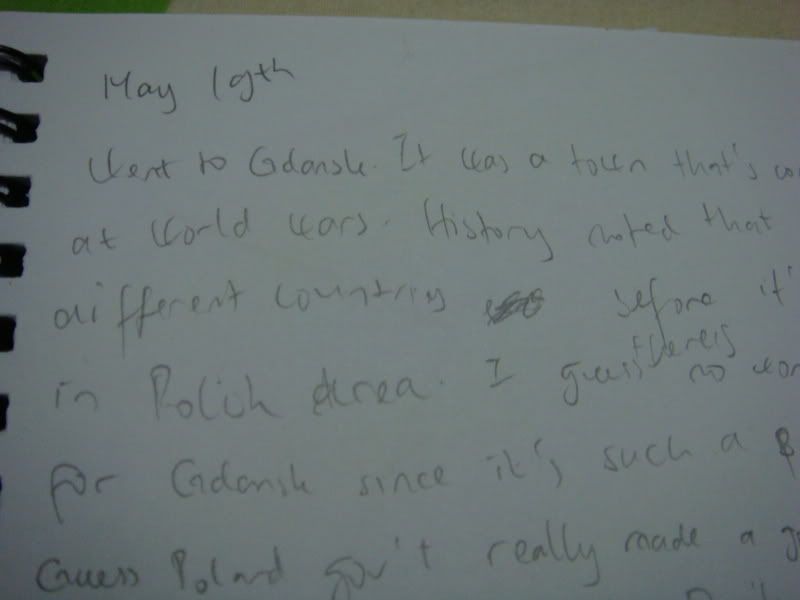 May 19th
Went to Gdansk. It was a town that's
at World Wars. History noted that
different countries before it'
there is
in Polish Area. I guess no
for Gdansk since it's such a
Guess Poland gov't really made a